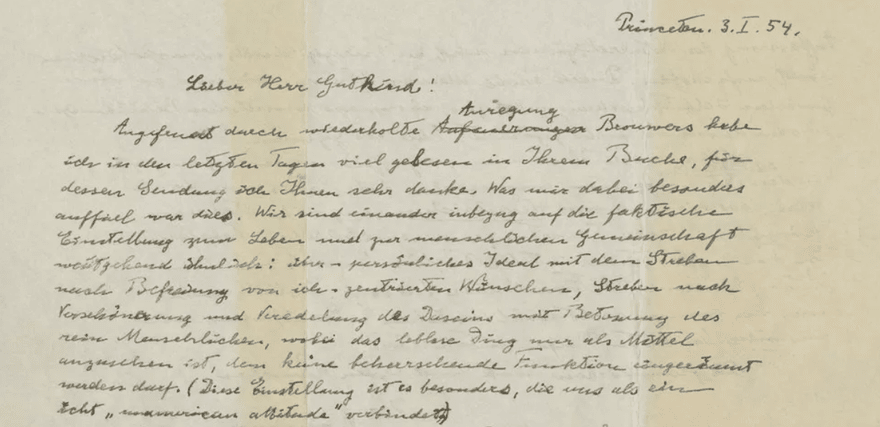 Princeton. 3. I. 54.
Lieber Herr Gutkind!
Anregung
Angefeuert durch wiederholte Brouwers habe
ich in den letzten Tagen viel gelesen in Ihrem Buche, für
dessen Sendung ich Ihnen sehr danke. Was mir dabei besonders
auffiel war dies. Wir sind einander inbezug auf die faktische
Einstellung zum Leben und zur menschlichen Gemeinschaft
weitgehend ähnlich: über-persönliches Ideal mit dem Streben
nach Befreiung von ich-zentrierten Wünschen, Streben nach
Verschönerung und Veredelung des Daseins mit Betonung des
rein Menschlichen, wobei das leblose Ding nur als Mittel
anzusehen ist, dem keine beherrschende Funktion eingeräumt
werden darf. (Diese Einstellung ist es besonders, die uns als ein
echt „unamerican attitude" verbindet)